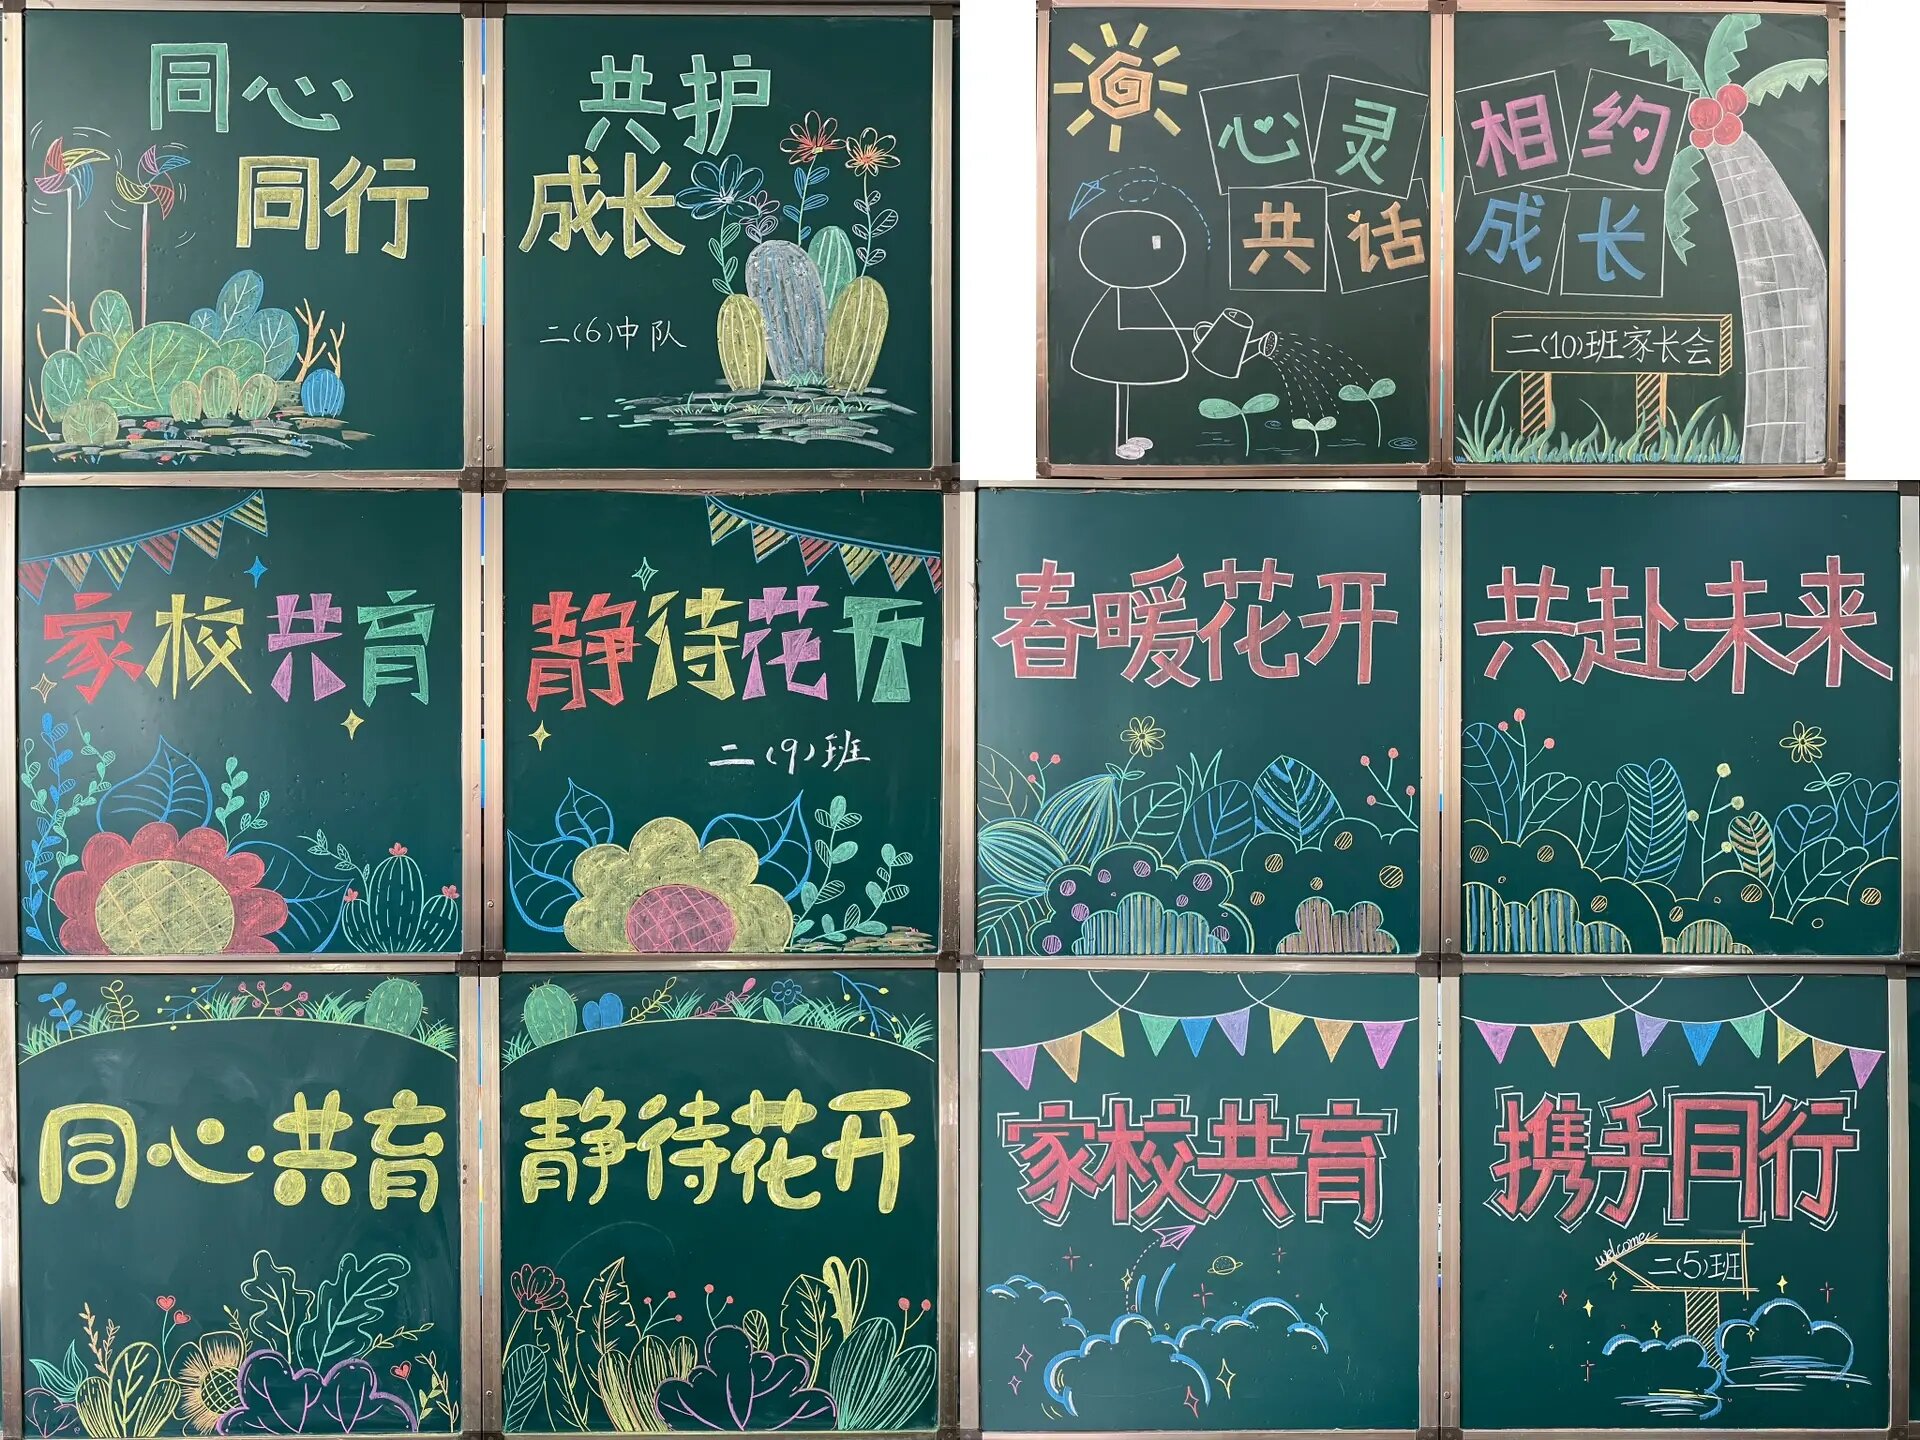 同心
同行
共护
成长
二(6)中队
心灵相约
共话成长
二(10)班家长会
家校共育
静待花开
二(9)班
春暖花开
共赴未来
同心共育
静待花开
家校共育
携手同行
welcome
二(5)班